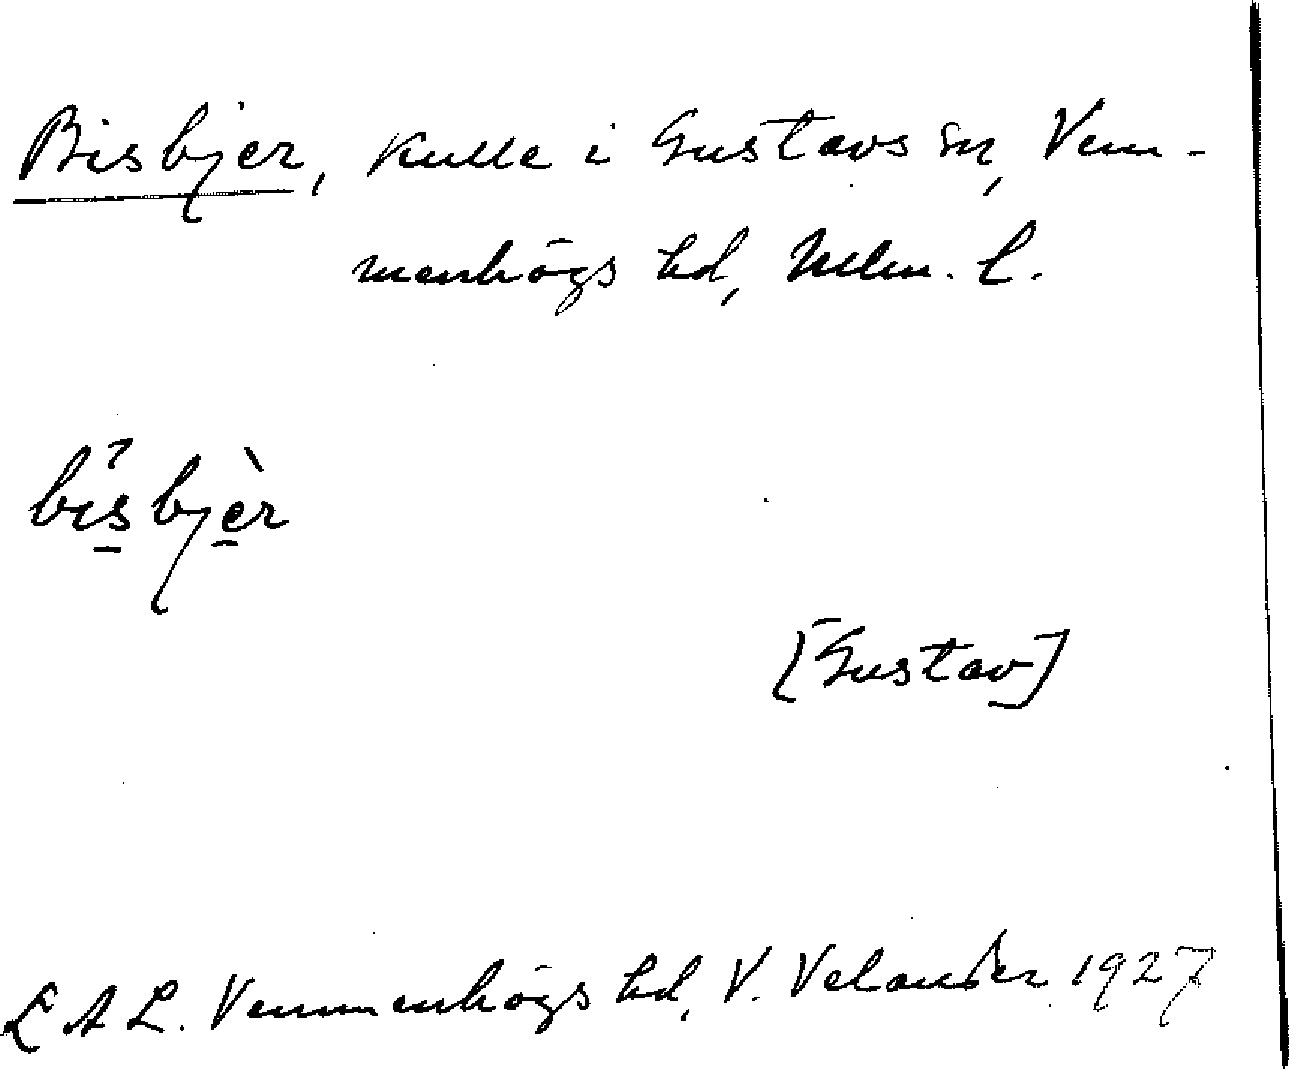 Bisbjer, kulle i Gustavs sn, Vem-
menhögs hd, Mlm. L.
bis̱bjèṟ
[Gustav]
LAL. Vemmenhögs hd, V. Velander 1927